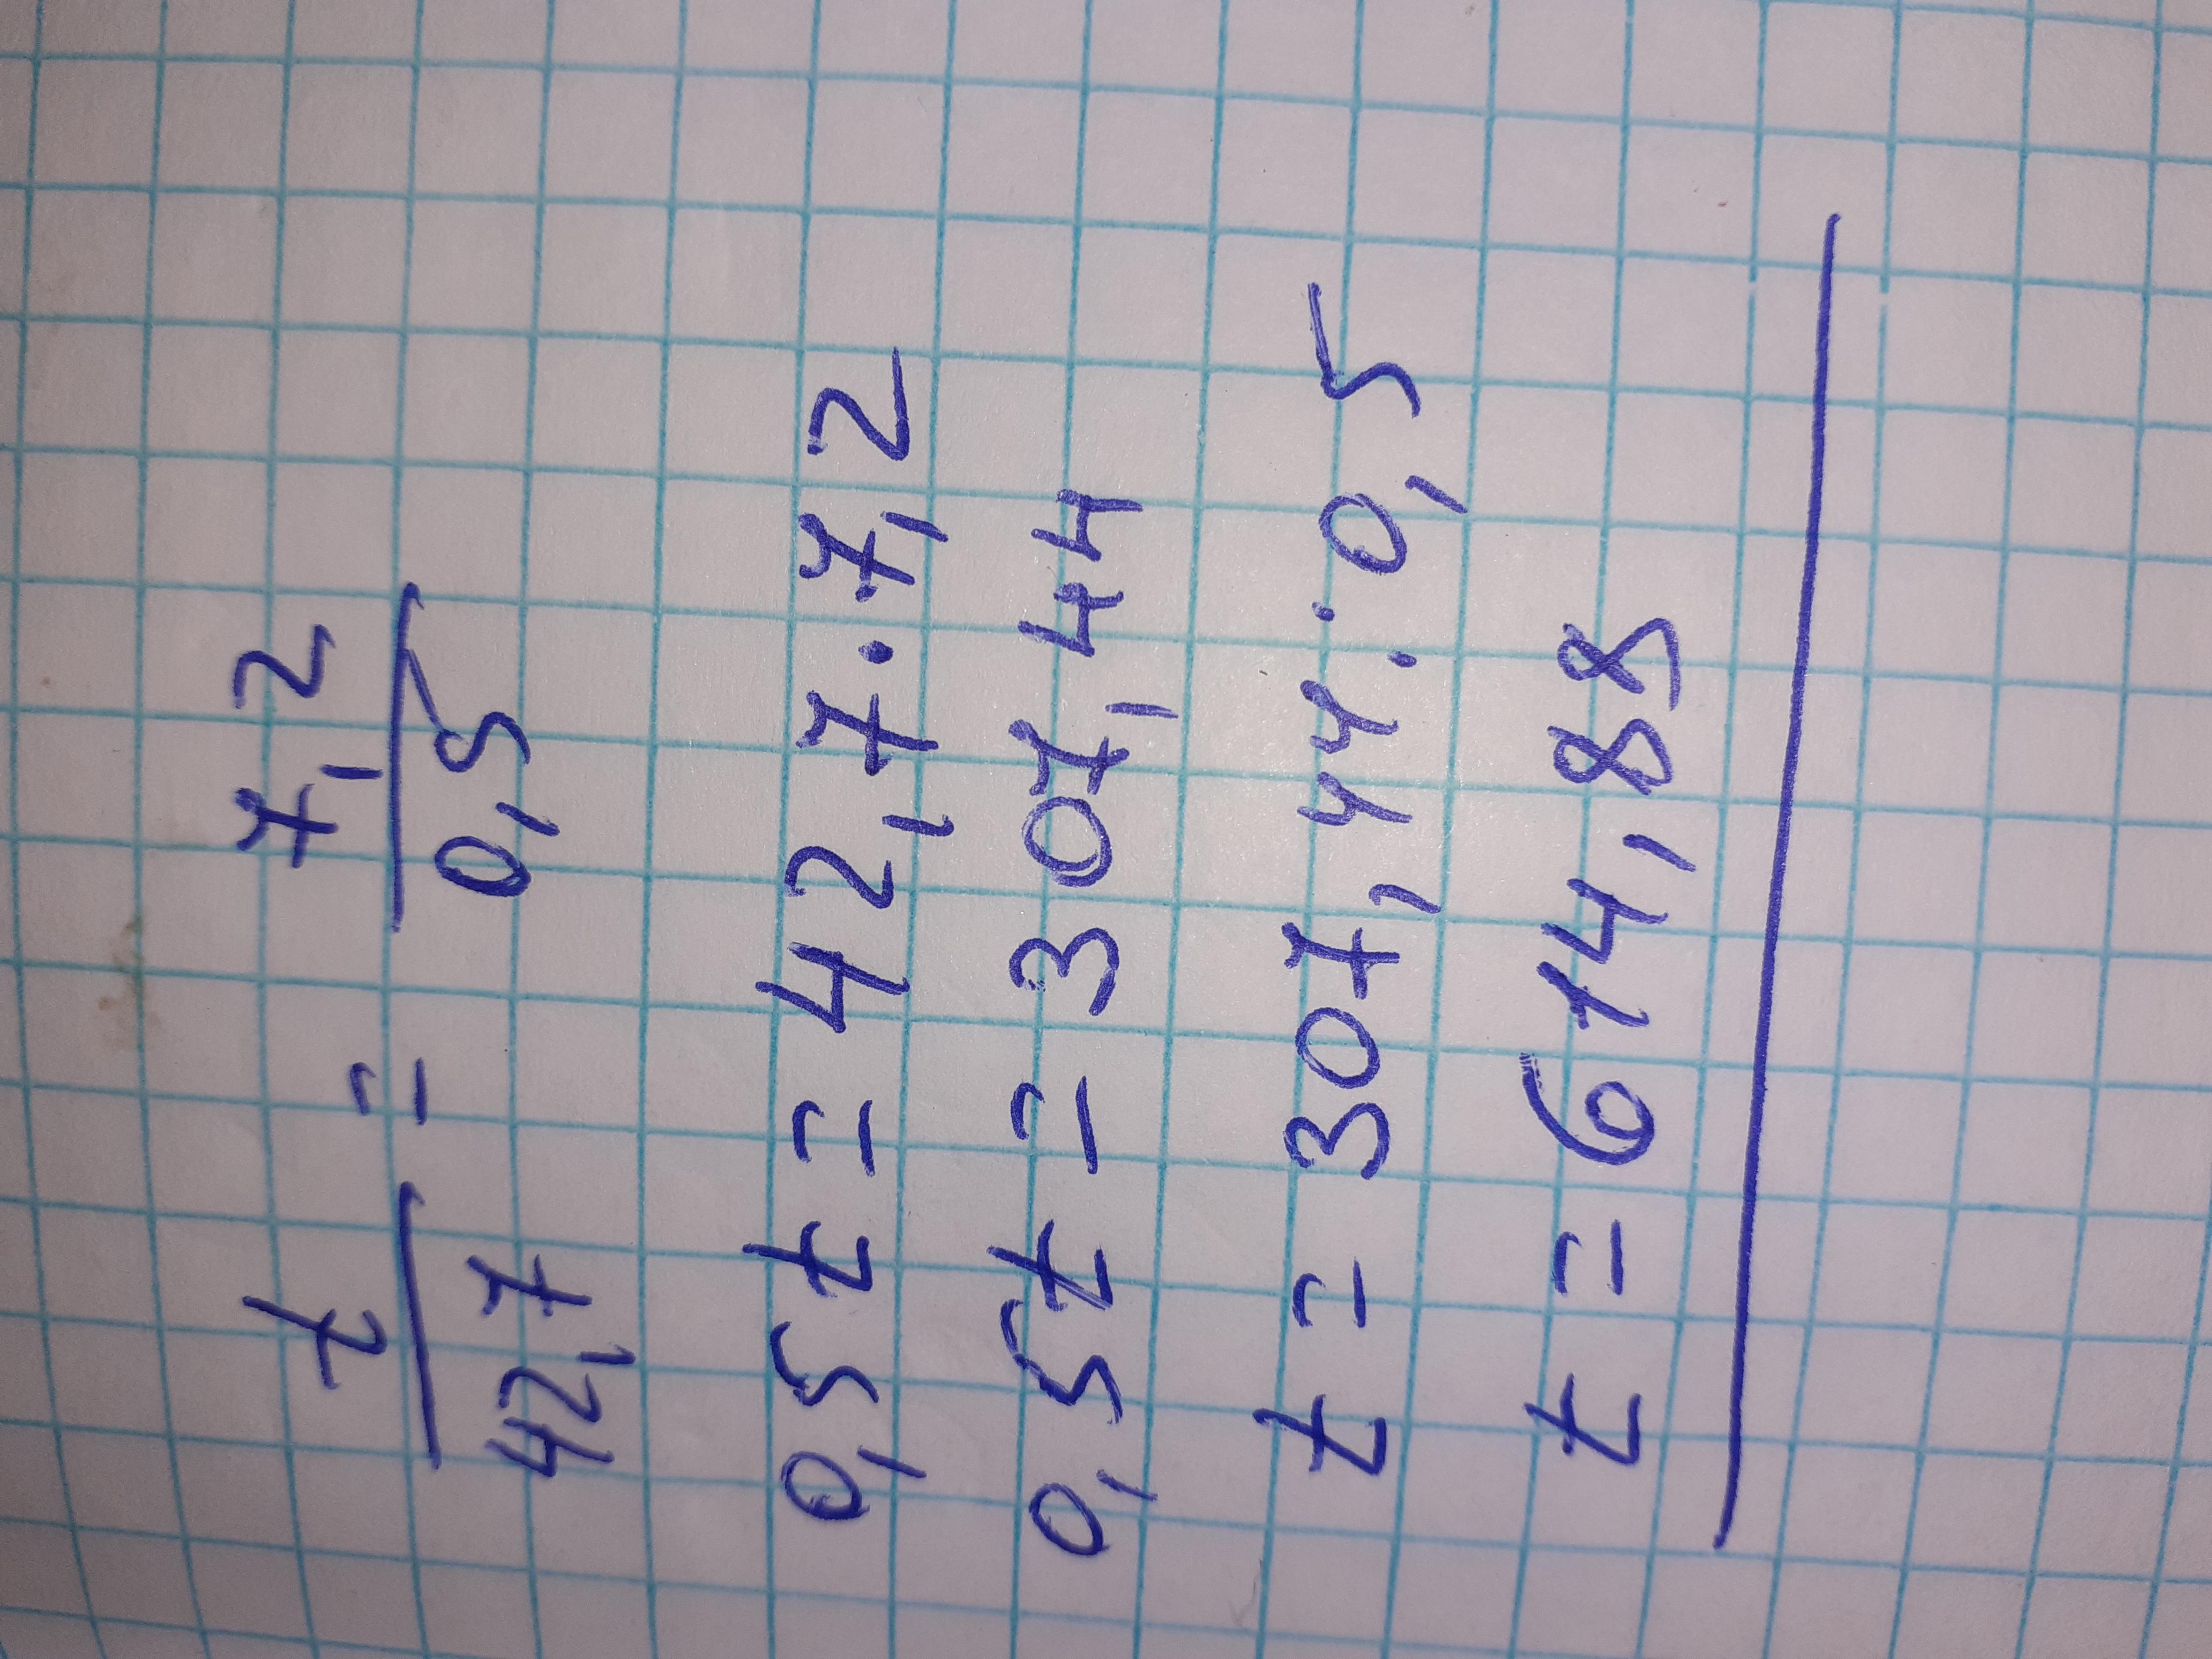 t/42,7 = 7,2/0,5
0,5t = 42,7·7,2
0,5t = 307,44
t = 307,44:0,5
t = 614,88